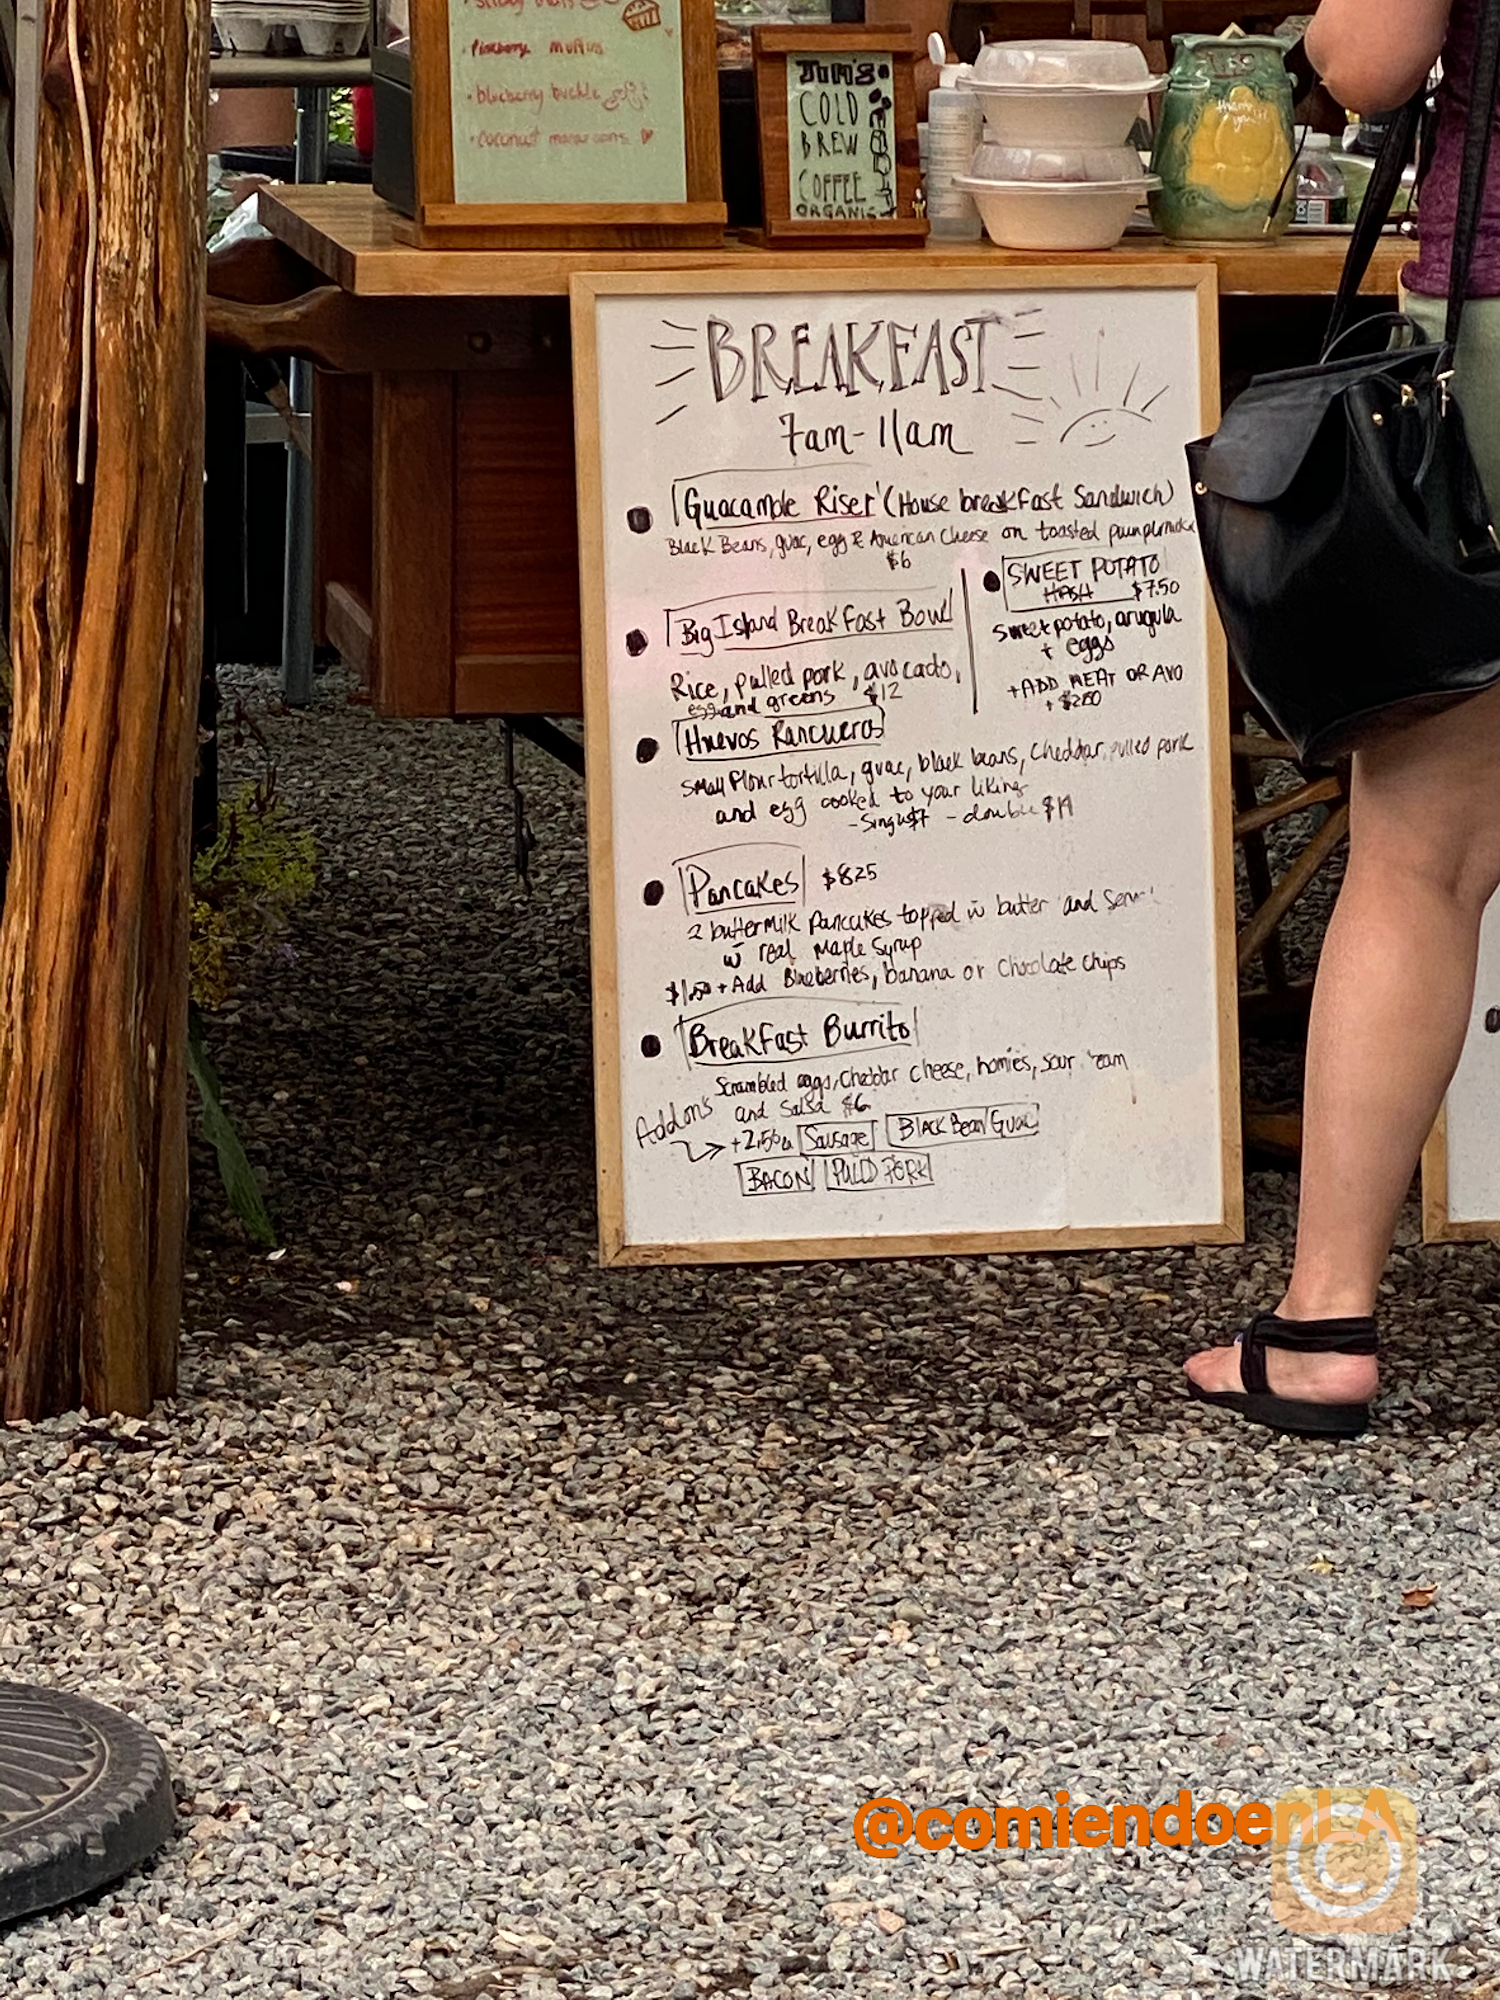 muffins
• blueberry buckle
• coconut macaroons
TOM'S
COLD
BREW
COFFEE
ORGANIC
thank
you
BREAKFAST
7am-11am
Guacamole Riser (House breakfast Sandwich)
Black Beans, guac, egg & American Cheese on toasted
$6
Big Island Breakfast Bowl
Rice, pulled pork, avocado,
egg and greens $12
SWEET POTATO
HASH $7.50
sweet potato, arugula
+ eggs
+ADD MEAT OR AVO
+ $2.50
Huevos Rancueros
small flour tortilla, guac, black beans, cheddar, pulled pork
and egg cooked to your liking
- Single $7 - double $11
Pancakes $8.25
2 buttermilk pancakes topped w butter and
w real Maple Syrup
$1.50 + Add Blueberries, banana or chocolate chips
Breakfast Burrito
Scrambled eggs, cheddar cheese, homies, sour cream
and salsa $6
Addons
+2.50 ea Sausage Black Bean/Guac
BACON PULLD PORK
@comiendoenLA
WATERMARK